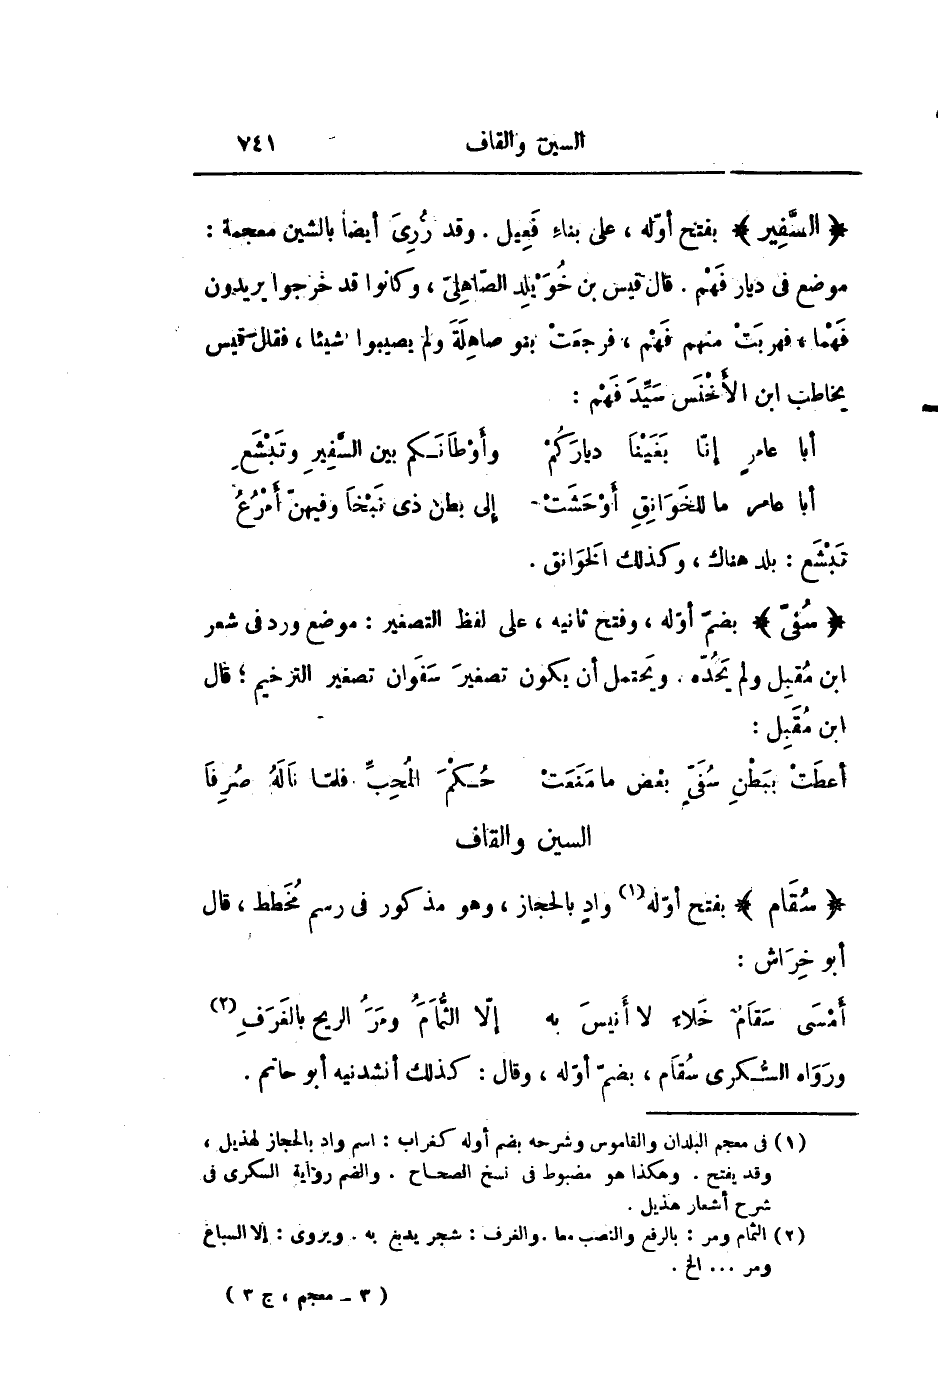 السين والقاف ٧٤١
﴿ السَّفِير ﴾ بفتح أوّله ، على بناءِ فَعِيل . وقد رُوِىَ أيضاً بالشين معجمة :
موضع فى ديار فَهْم . قال قيس بن خُوَيْلِد الصّاهِلِىّ ، وكانوا قد خرجوا يريدون
فَهْما ، فهربَتْ منهم فَهْم ، فرجعَتْ بنو صاهِلَةَ ولم يصيبوا شيئا ، فقال قيس
يخاطب ابن الأَخْنَس سَيِّدَ فَهْم :
أبا عامرٍ إنّا بَغَيْنَا ديارَكُمْ وأَوْطَانَـكم بين السَّفِيرِ وتَبْشَعِ
أبا عامر ما للخَوَانِقِ أَوْحَشَتْ إلى بطن ذى نَبْخَا وفيهنّ أَمْرُعُ
تَبْشَع : بلد هناك ، وكذلك الَخوَانق .
﴿ سُفَىّ ﴾ بضمّ أوّله ، وفتح ثانيه ، على لفظ التصغير : موضع ورد فى شعر
ابن مُقبِل ولم يَحُدّه . ويَحتمل أن يكون تصغيرَ سَفَوان تصغير الترخيم ؛ قال
ابن مُقَبِل :
أعطَتْ ببَطْنِ سُفَىّ بعْض مامَنَعَتْ حُـكْمَ المُحِبِّ فلمّـا نَالَهُ صُرِفَا
السين والقاف
﴿ سُقَام ﴾ بفتح أوّله(١) وادٍ بالحجاز ، وهو مذكور فى رسم مُخَطط ، قال
أبو خِرَاش :
أَمْسَى سَقَامٌ خَلاء لا أَنيسَ به إلّا الثُّمَامُ ومَرُّ الريح بالغَرَفِ(٢)
ورَوَاه السُّـكرى سُقَام ، بضمّ أوّله ، وقال : كذلك أنشدنيه أبو حاتم .
(١) فى معجم البلدان والقاموس وشرحه بضم أوله كغراب : اسم واد بالحجاز لهذيل ،
وقد يفتح . وهكذا هو مضبوط فى نسخ الصحاح . والضم رواية السكرى فى
شرح أشعار هذيل .
(٢) الثمام ومر : بالرفع والنصب معا . والغرف : شجر يدبغ به . ويروى : إلا السباع
ومر ... الخ .
( ٣ ــ معجم ، ج ٣ )